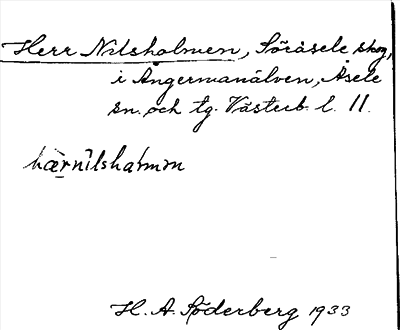 Herr Nilsholmen, Söråsele skog,
i Ångermanälven, Åsele
sn. och tg. Västerb. l. 11.
hærnilshaɫmən
H. A. Söderberg 1933